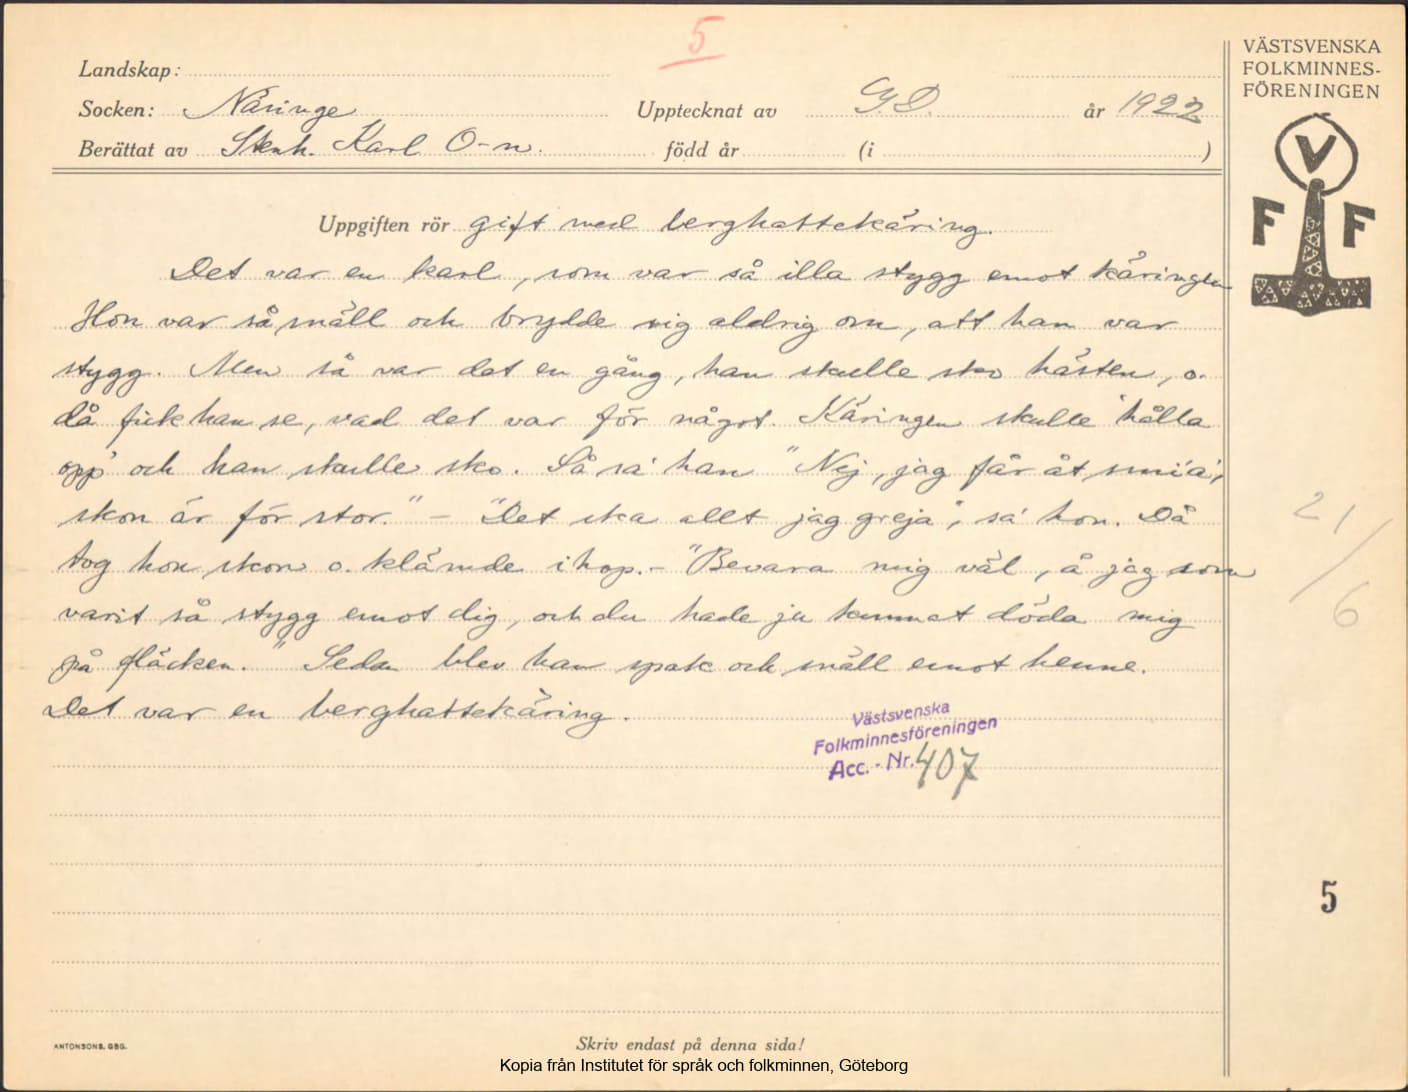 5
VÄSTSVENSKA
FOLKMINNES-
FÖRENINGEN
Landskap:
Socken: Näringe Upptecknat av G.D. år 1922
Berättat av Stenh. Karl O-n. född år (i )
V
F F
Uppgiften rör gift med berghattekäring.
Det var en karl, som var så illa stygg emot käringen
Hon var så snäll och brydde sig aldrig om, att han var
stygg. Men så var det en gång, han skulle sko hästen, o.
då fick han se, vad det var för något. Käringen skulle 'hålla
opp' och han skulle sko. Så sa' han "Nej, jag får åt smi'a',
skon är för stor." – "Det ska allt jag greja", sa' hon. Då
tog hon skon o. klämde ihop. – "Bevara mig väl, å jag som
varit så stygg emot dig, och du hade ju kunnat döda mig
på fläcken." Sedan blev han spak och snäll emot henne.
Det var en berghattekäring.
21/6
Västsvenska
Folkminnesföreningen
Acc. - Nr. 407
5
ANTONSONS, GBG.
Skriv endast på denna sida!
Kopia från Institutet för språk och folkminnen, Göteborg